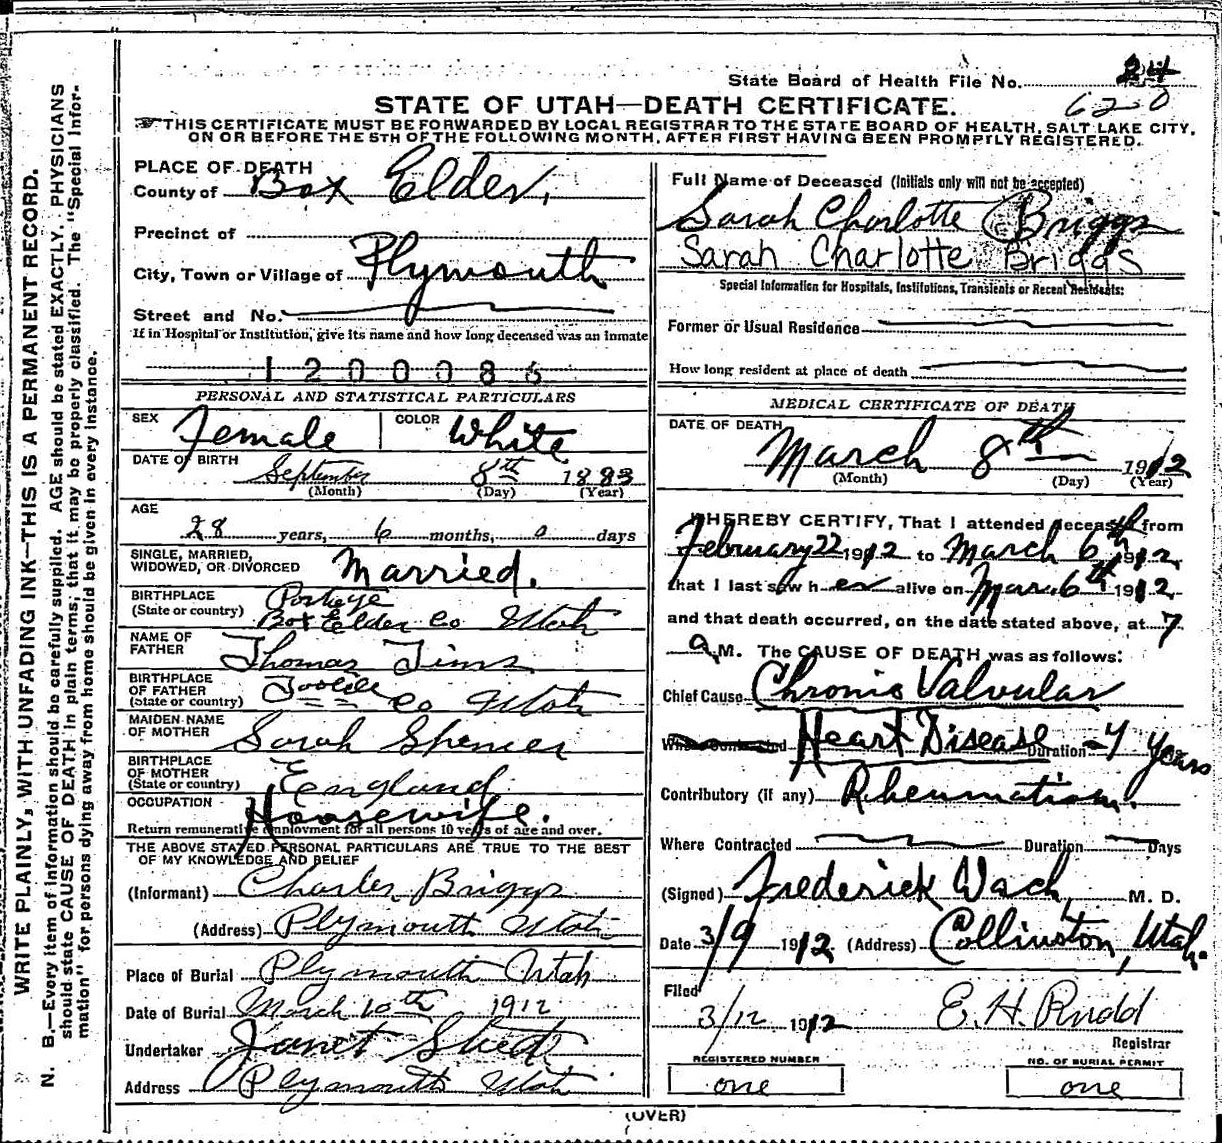 State Board of Health File No. 24
620
STATE OF UTAH—DEATH CERTIFICATE.
THIS CERTIFICATE MUST BE FORWARDED BY LOCAL REGISTRAR TO THE STATE BOARD OF HEALTH, SALT LAKE CITY,
ON OR BEFORE THE 5TH OF THE FOLLOWING MONTH, AFTER FIRST HAVING BEEN PROMPTLY REGISTERED.
WRITE PLAINLY, WITH UNFADING INK—THIS IS A PERMANENT RECORD.
N. B.—Every item of information should be carefully supplied. AGE should be stated EXACTLY. PHYSICIANS
should state CAUSE OF DEATH in plain terms, that it may be properly classified. The "Special Infor-
mation" for persons dying away from home should be given in every instance.
PLACE OF DEATH
County of Box Elder,
Precinct of
City, Town or Village of Plymouth
Street and No.
If in Hospital or Institution, give its name and how long deceased was an inmate
1200086
PERSONAL AND STATISTICAL PARTICULARS
SEX Female COLOR White
DATE OF BIRTH September 8th 1883
(Month) (Day) (Year)
AGE
28 years, 6 months, 0 days
SINGLE, MARRIED,
WIDOWED, OR DIVORCED Married.
BIRTHPLACE Portage
(State or country) Box Elder Co Utah
NAME OF
FATHER Thomas Tims
BIRTHPLACE
OF FATHER
(State or country) Tooele Co Utah
MAIDEN NAME
OF MOTHER Sarah Spencer
BIRTHPLACE
OF MOTHER
(State or country) England
OCCUPATION Housewife.
Return remunerative employment for all persons 10 years of age and over.
THE ABOVE STATED PERSONAL PARTICULARS ARE TRUE TO THE BEST
OF MY KNOWLEDGE AND BELIEF
(Informant) Charles Briggs
(Address) Plymouth Utah
Place of Burial Plymouth Utah
Date of Burial March 10th 1912
Undertaker Janet
Address Plymouth Utah
Full Name of Deceased (Initials only will not be accepted)
Sarah Charlotte Briggs
Sarah Charlotte Briggs
Special Information for Hospitals, Institutions, Transients or Recent Residents:
Former or Usual Residence
How long resident at place of death
MEDICAL CERTIFICATE OF DEATH
DATE OF DEATH
March 8th 1912
(Month) (Day) (Year)
I HEREBY CERTIFY, That I attended deceased from
February 22 1912 to March 6th 1912
that I last saw her alive on Mar. 6th 1912
and that death occurred, on the date stated above, at 7
a M. The CAUSE OF DEATH was as follows:
Chief Cause Chronic Valvular
Where Contracted Heart Disease Duration 7 years
Contributory (if any) Rheumatism.
Where Contracted Duration Days
(Signed) Frederick Wach, M. D.
Date 3/9 1912 (Address) Collinston, Utah.
Filed
3/12 1912 E. H. Rudd
Registrar
REGISTERED NUMBER NO. OF BURIAL PERMIT
one one
(OVER)